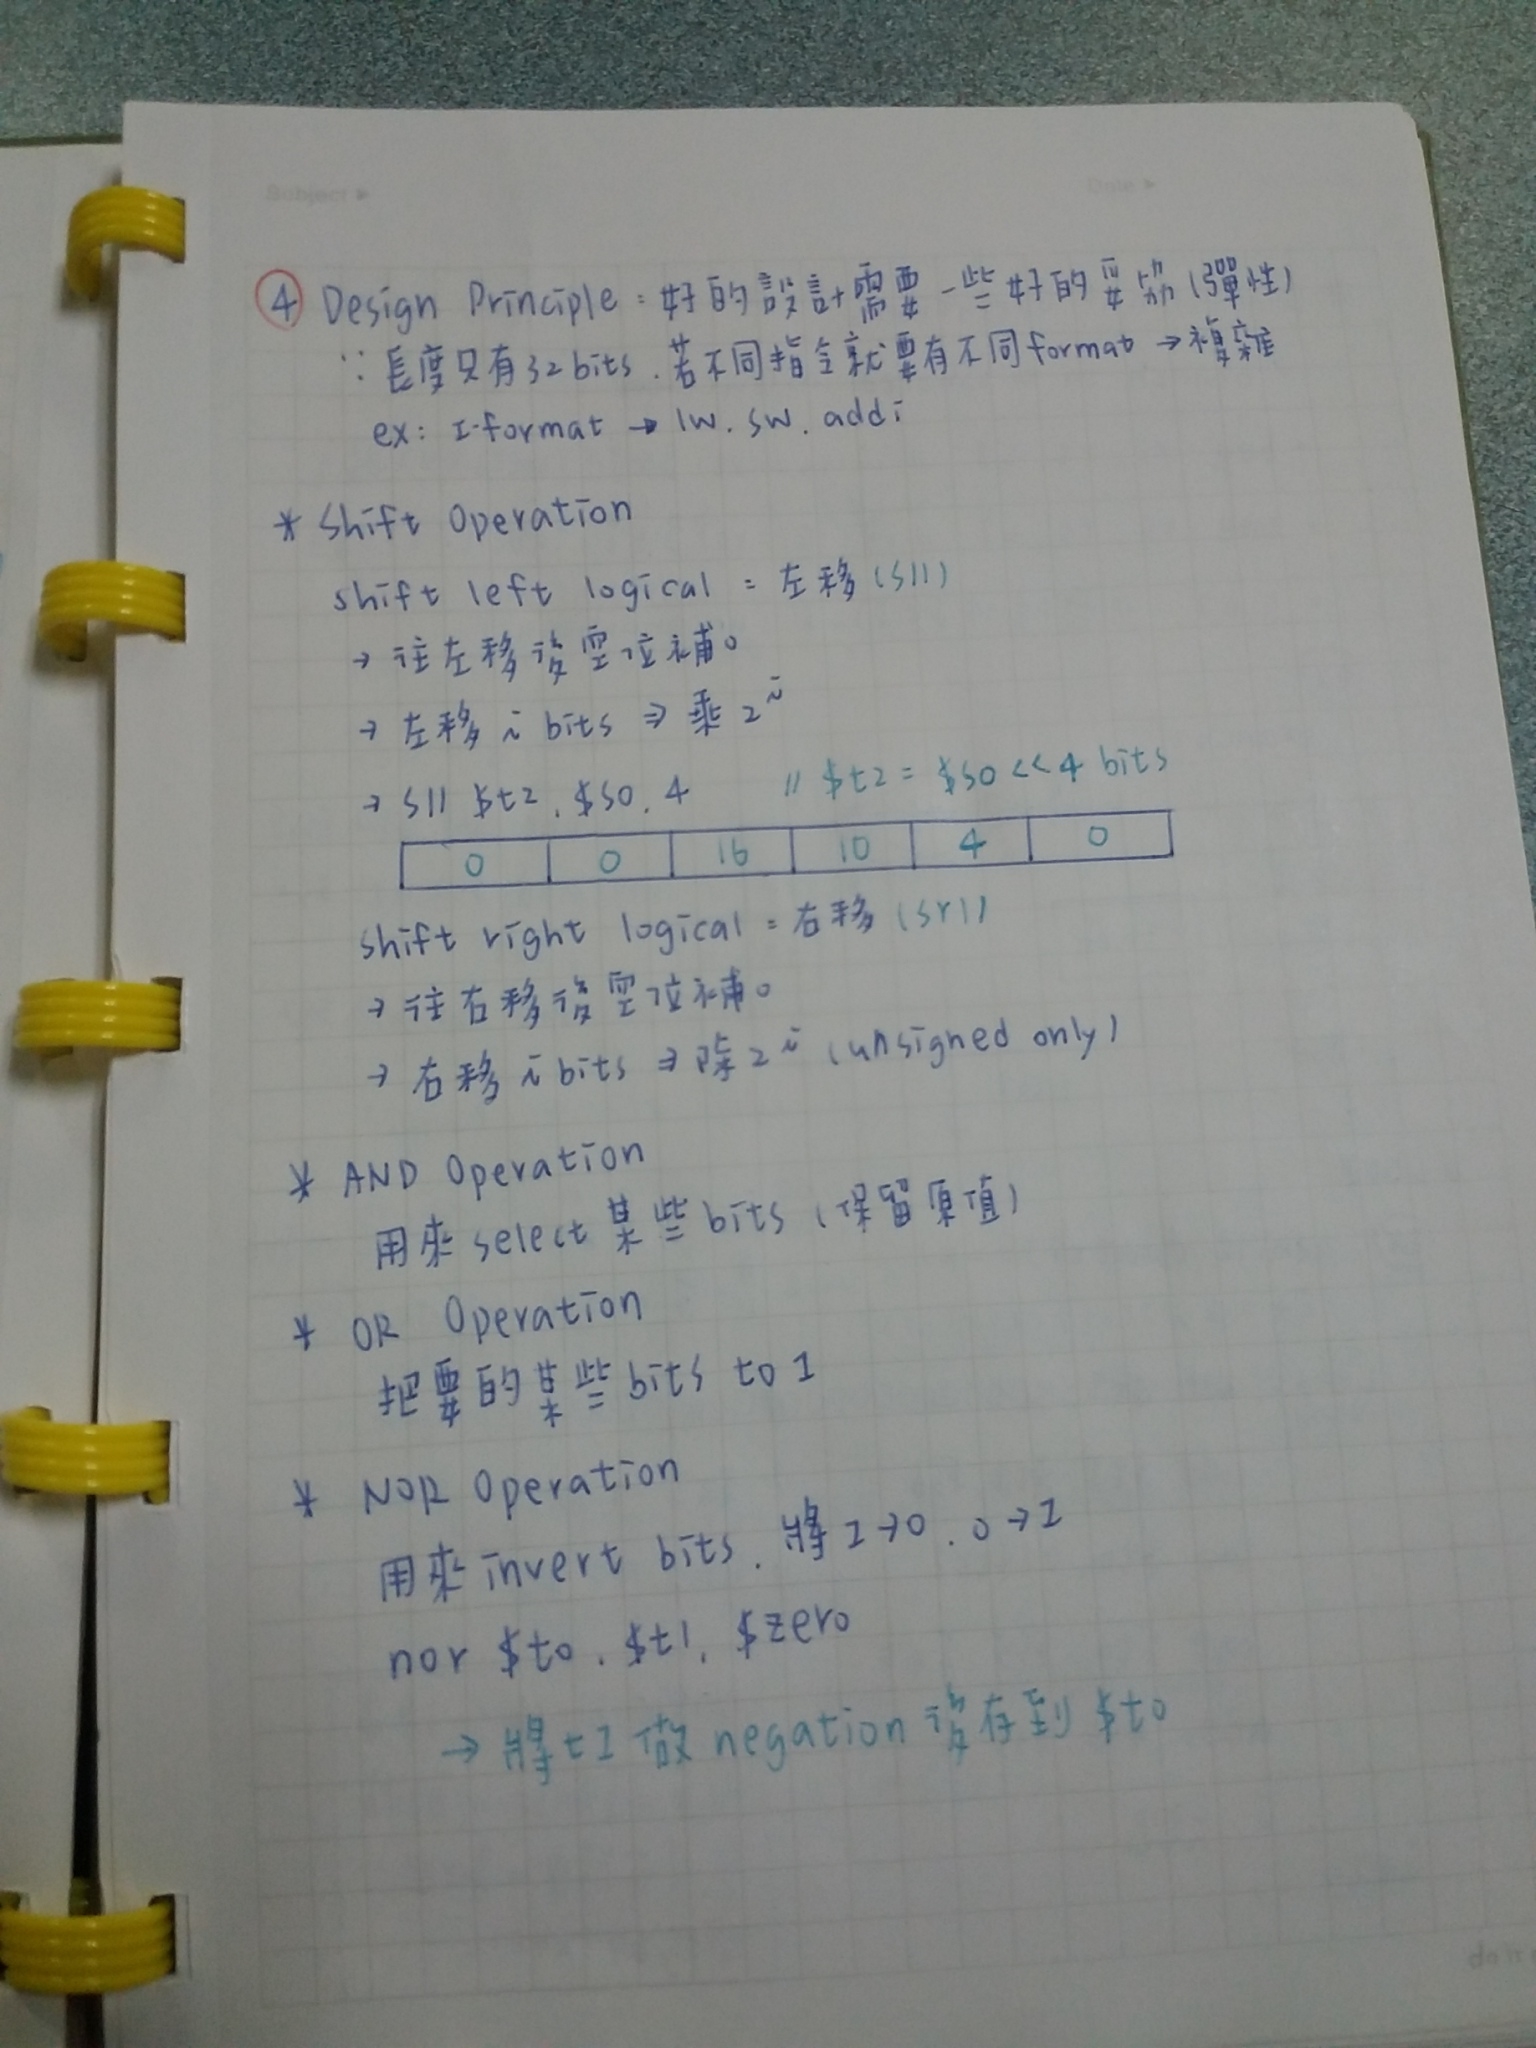 Subject ▸ Date ▸
④ Design Principle：好的設計需要一些好的妥協(彈性)
∵長度只有32bits．若不同指令就要有不同format→複雜
ex: I-format → lw. sw. addi
* Shift Operation
shift left logical = 左移(sll)
→ 往左移後空位補0
→ 左移 i bits ⇒ 乘 2^i
→ sll $t2. $s0. 4 // $t2 = $s0 << 4 bits
0 0 16 10 4 0
shift right logical = 右移 (srl)
→ 往右移後空位補0
→ 右移 i bits ⇒ 除 2^i (unsigned only)
* AND Operation
用來 select 某些 bits (保留原值)
* OR Operation
把要的某些 bits to 1
* NOR Operation
用來 invert bits. 將 1→0. 0→1
nor $t0. $t1. $zero
→ 將t1 做 negation 後存到 $t0